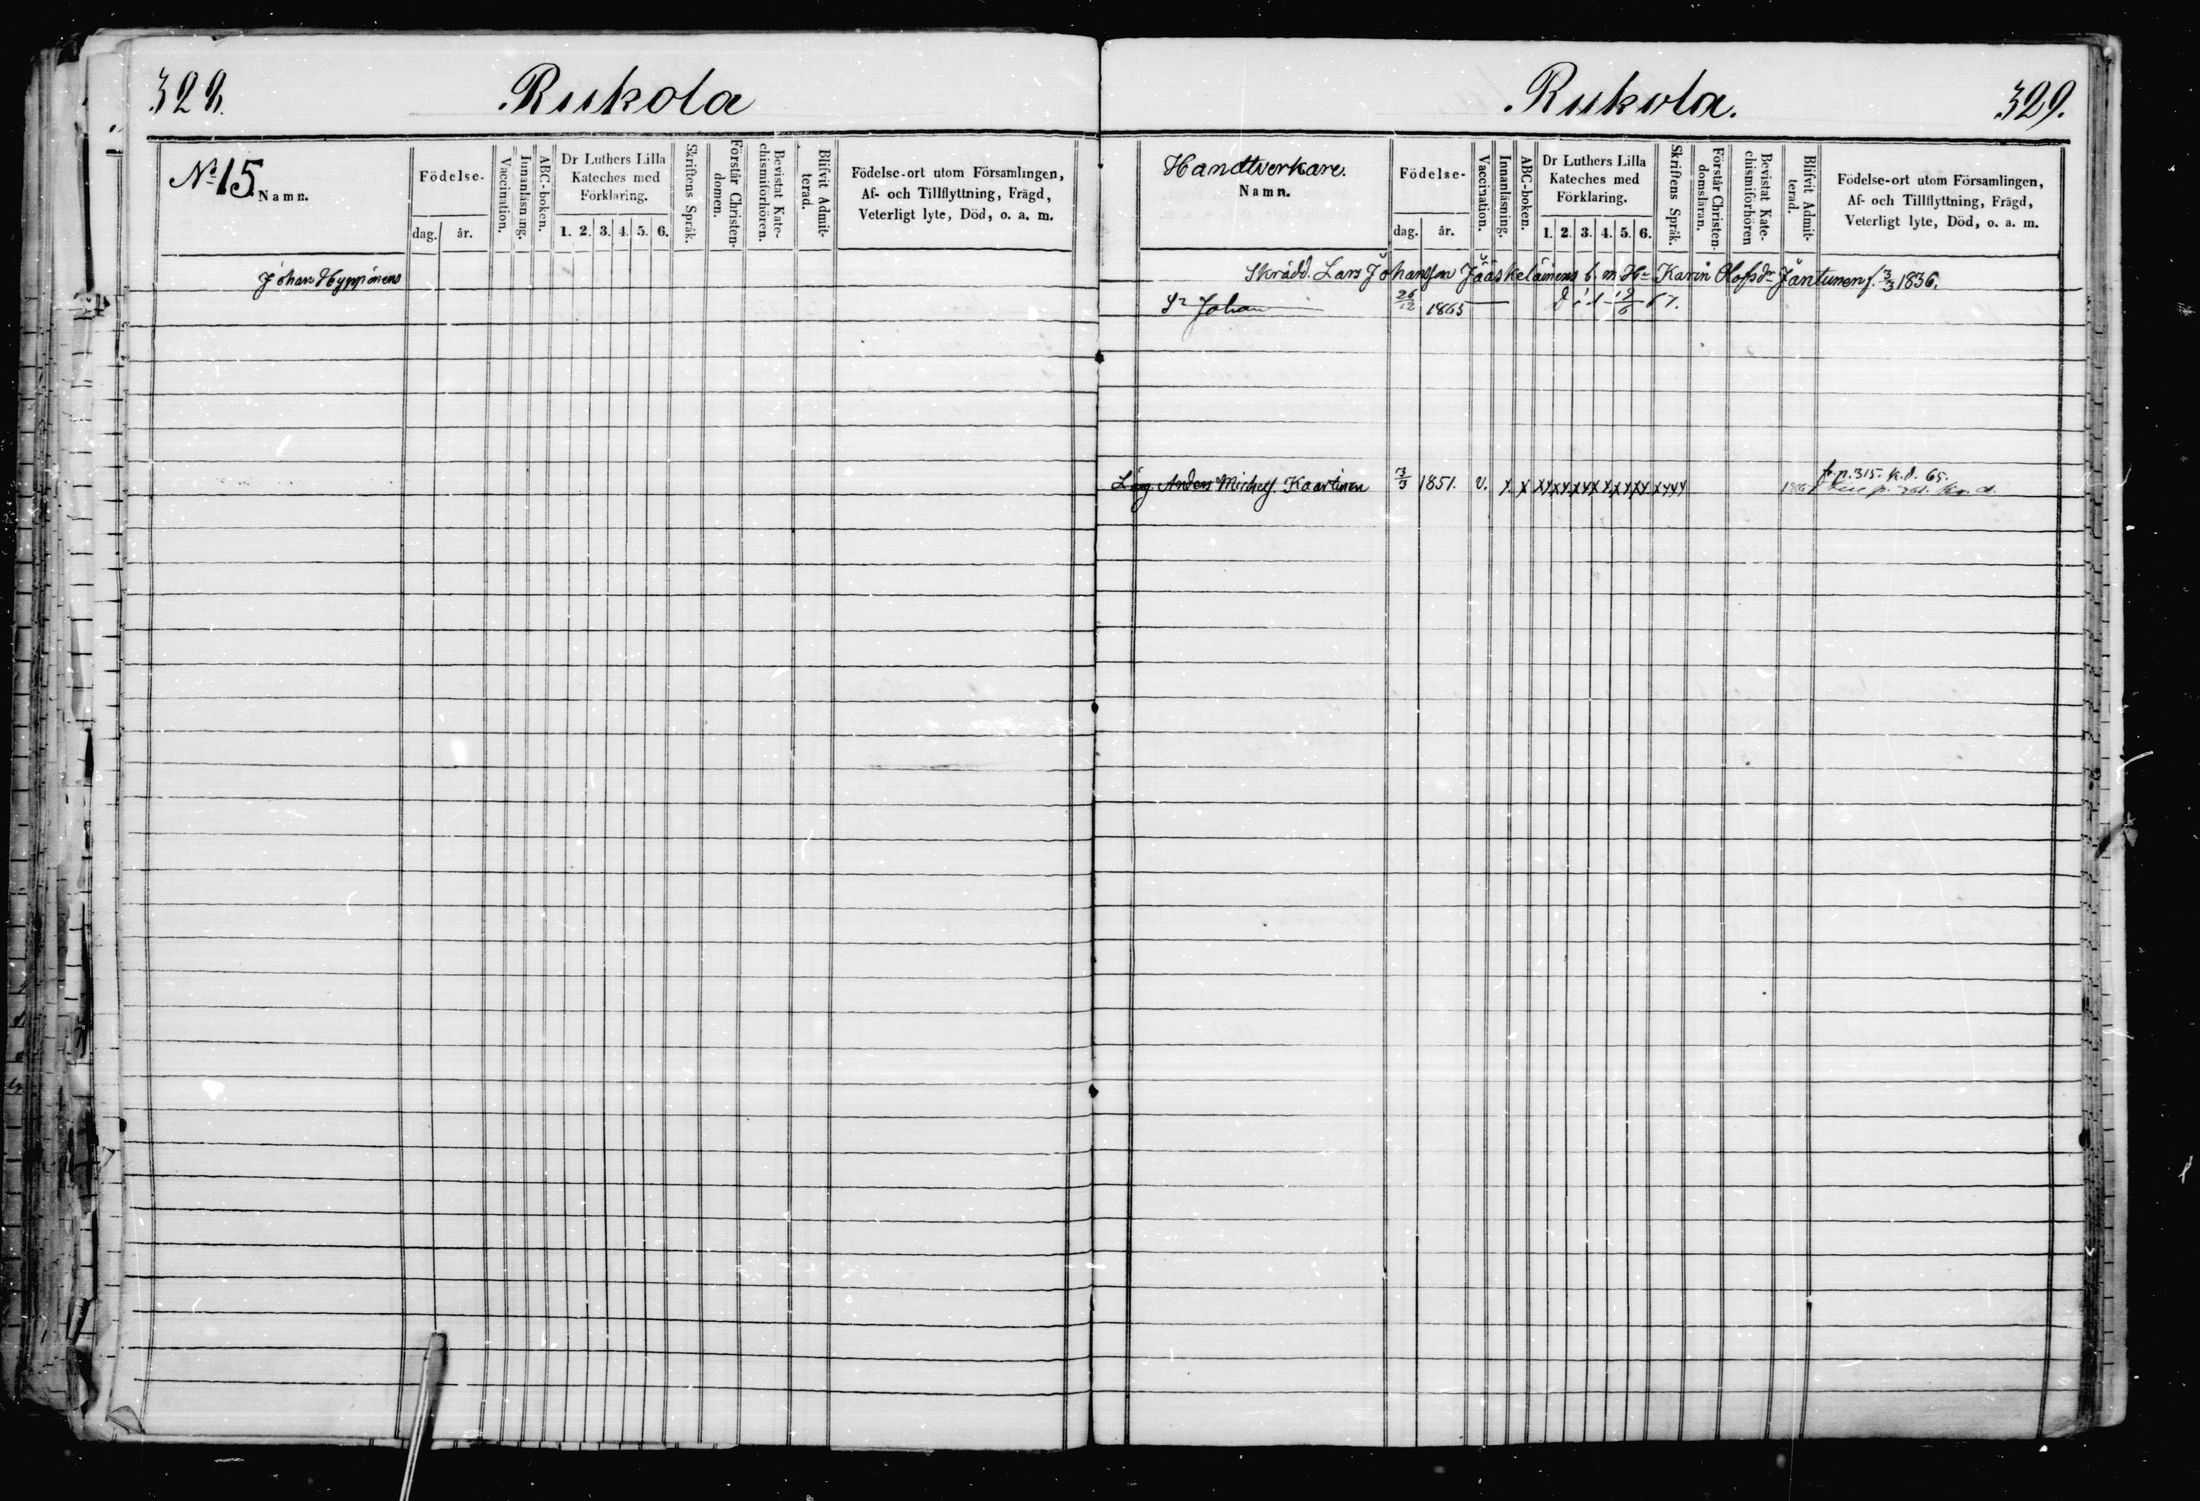 328.
Rukola
No 15.
Namn.
Födelse-
dag.
år.
Vaccination.
Innanläsning.
ABC-boken.
Dr Luthers Lilla
Kateches med
Förklaring.
1. 2. 3. 4. 5. 6.
Skriftens Språk.
Förstår Christen-
domen.
Bevistat Kate-
chismiförhören.
Blifvit Admit-
terad.
Födelse-ort utom Församlingen,
Af- och Tillflyttning, Frägd,
Veterligt lyte, Död, o. a. m.
Johan Hyppönens
Rukola.
329.
Handtverkare.
Namn.
Födelse-
dag.
år.
Vaccination.
Innanläsning.
ABC-boken.
Dr Luthers Lilla
Kateches med
Förklaring.
1. 2. 3. 4. 5. 6.
Skriftens Språk.
Förstår Christen-
domsläran.
Bevistat Kate-
chismiförhören
Blifvit Admit-
terad.
Födelse-ort utom Församlingen,
Af- och Tillflyttning, Frägd,
Veterligt lyte, Död, o. a. m.
Skrädd. Lars Johansson Jääskeläinens Karin Olofsdr Jäntunen f. 3/3 1836.
Johan 26/12 1865 död 67.
Anders Michelss. Kaartinen 3/3 1851. v. x x
fr. p. 315. k.d. 65.